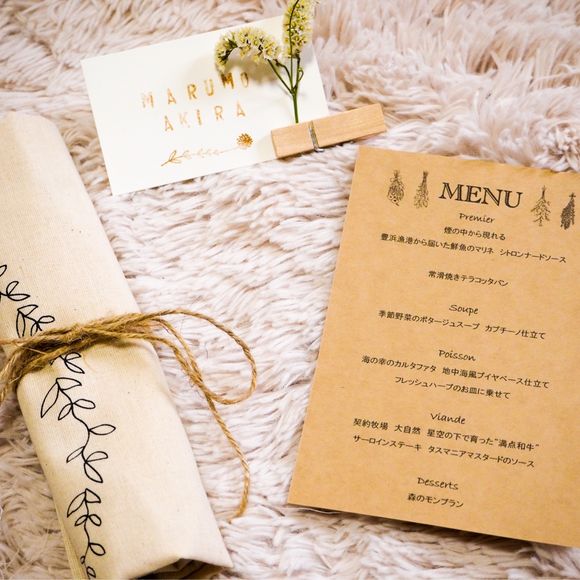 MARUMO
AKIRA
MENU
Premier
煙の中から現れる
豊浜漁港から届いた鮮魚のマリネ シトロンナードソース
常滑焼きテラコッタパン
Soupe
季節野菜のポタージュスープ カプチーノ仕立て
Poisson
海の幸のカルタファタ 地中海風ブイヤベース仕立て
フレッシュハーブのお皿に乗せて
Viande
契約牧場 大自然 星空の下で育った"満点和牛"
サーロインステーキ タスマニアマスタードのソース
Desserts
森のモンブラン